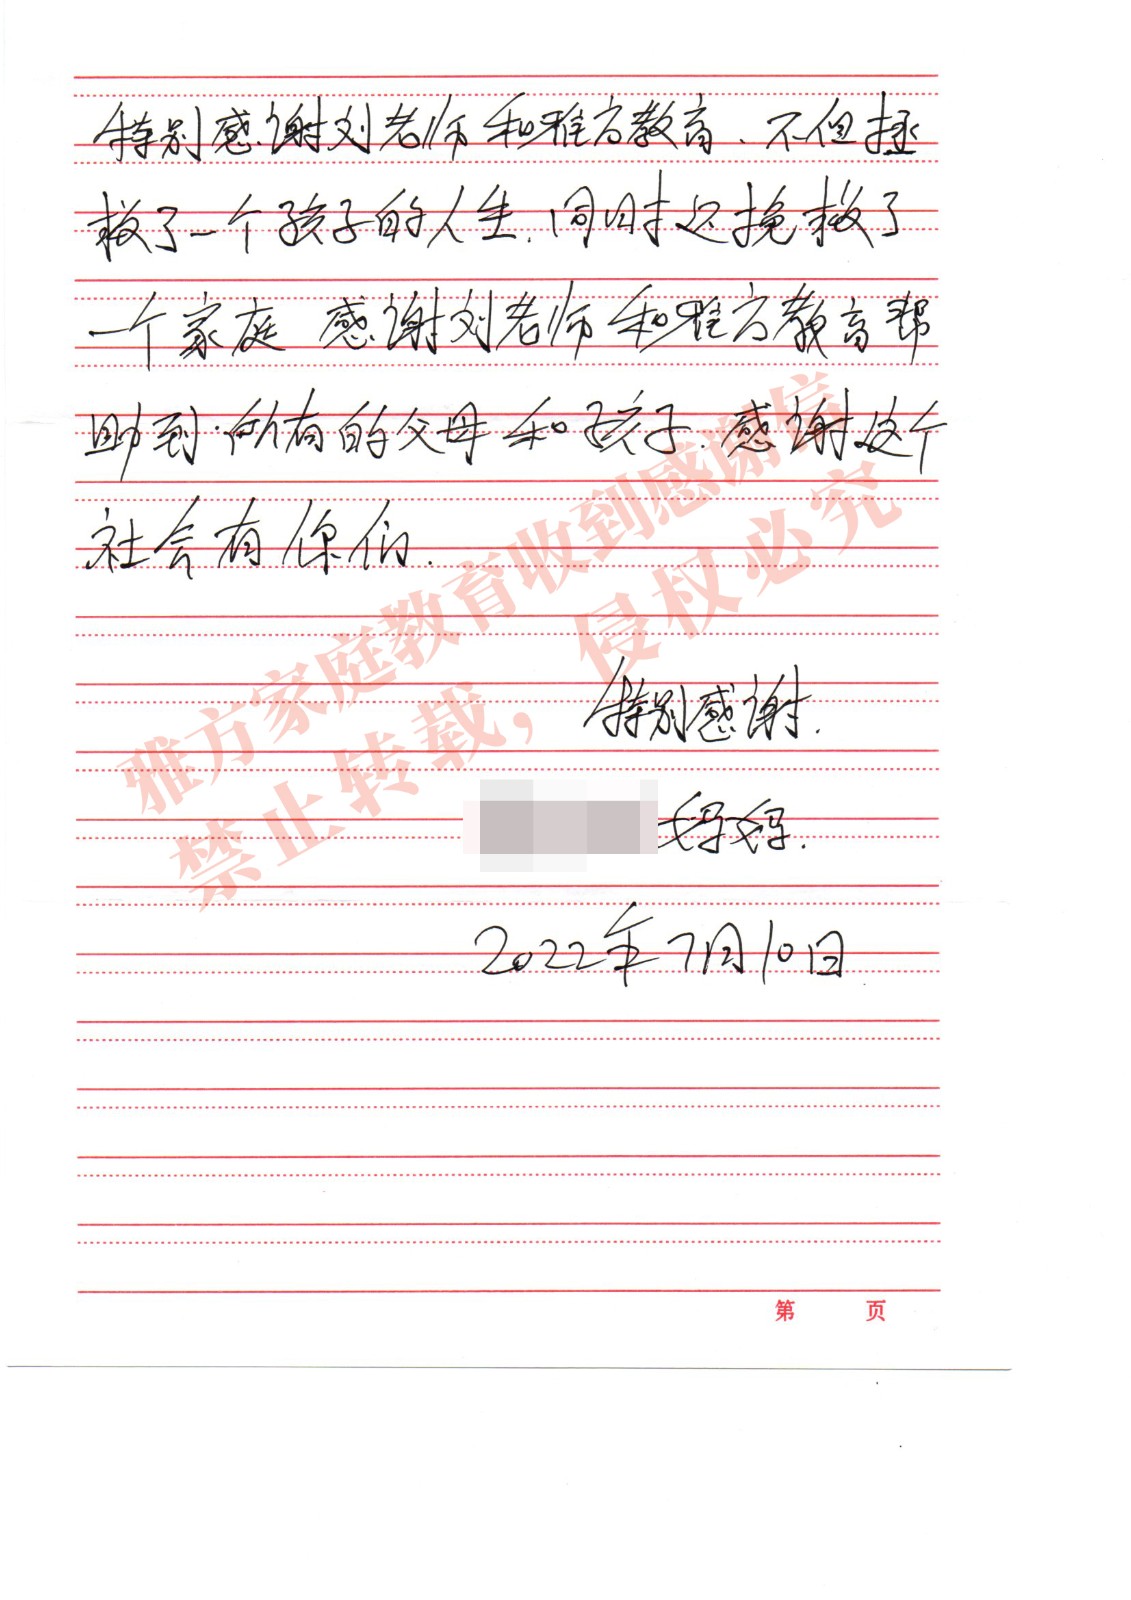 特别感谢刘老师和雅方教育、不但拯
救了一个孩子的人生.同时还挽救了
一个家庭 感谢刘老师和雅方教育帮
助到.所有的父母和孩子.感谢这个
社会有你们.
雅方家庭教育收到感谢信
禁止转载，侵权必究
特别感谢.
妈妈.
2022年7月10日
第 页